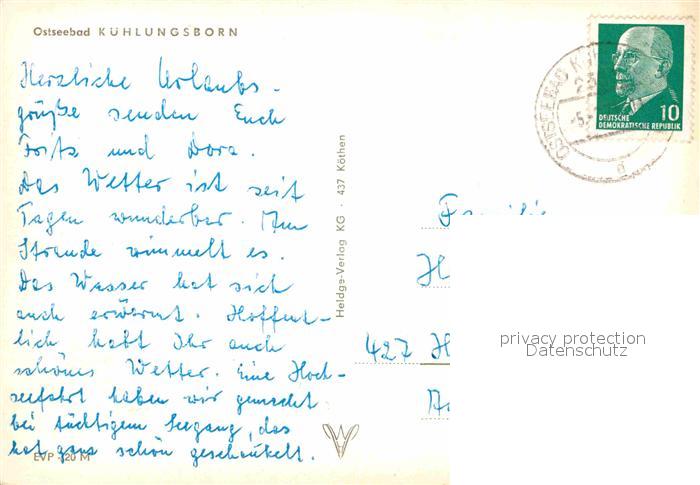 Ostseebad KÜHLUNGSBORN
Herzliche Urlaubs-
grüße senden Euch
Fritz und Dora.
Das Wetter ist seit
Tagen wunderbar. Am
Strande wimmelt es.
Das Wasser hat sich
auch erwärmt. Hoffent-
lich habt Ihr auch
schönes Wetter. Eine Hoch-
seefahrt haben wir gemacht
bei tüchtigem Seegang, das
hat ganz schön geschaukelt.
EVP -,20 M
Heldge-Verlag KG · 437 Köthen
OSTSEEBAD
10
DEUTSCHE
DEMOKRATISCHE REPUBLIK
Familie
H
427 H
privacy protection
Datenschutz